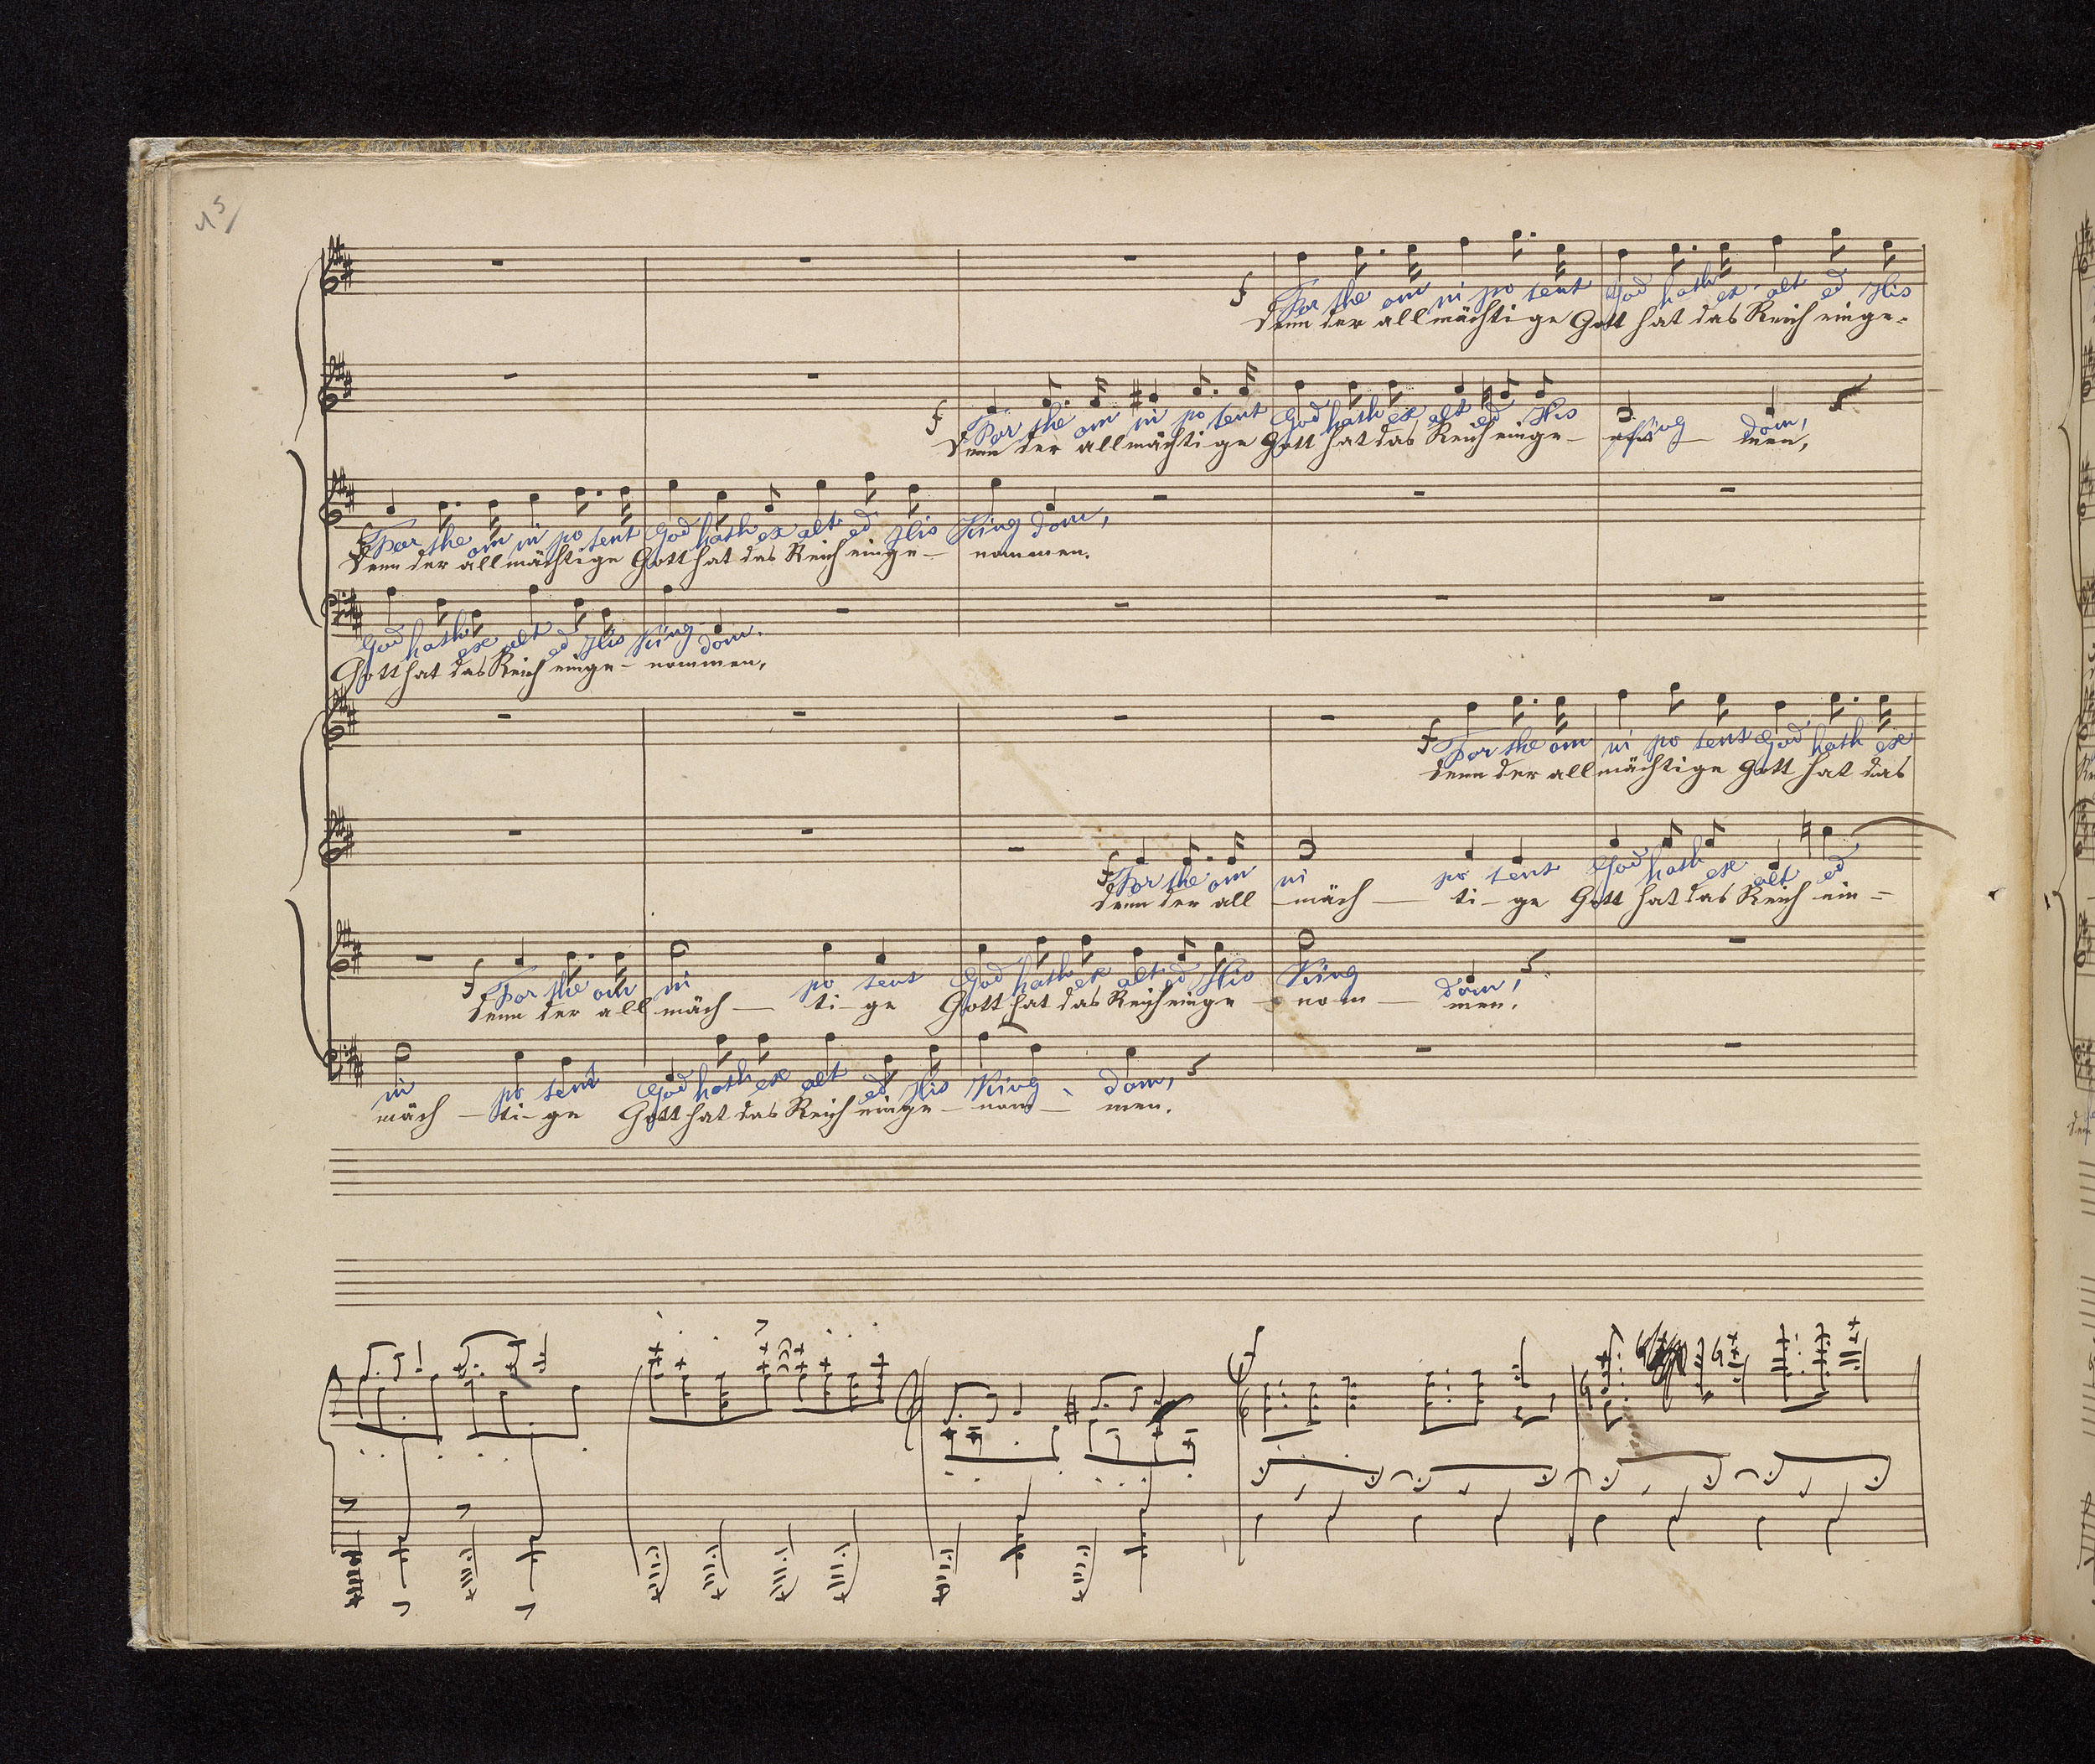 15
f
For the om ni po tent God hath ex alt ed His
Denn der allmächtige Gott hat das Reich einge-
f
For the om ni po tent God hath ex alt ed His King dom,
Denn der allmächtige Gott hat das Reich einge- men,
f
For the om ni po tent God hath ex alt ed His King dom,
Denn der allmächtige Gott hat das Reich einge- nommen.
God hath ex alt ed His King dom.
Gott hat das Reich einge- nommen,
f
For the om ni po tent God hath ex
denn der allmächtige Gott hat das
f
For the om ni po tent God hath ex alt ed
denn der all -mäch- ti-ge Gott hat das Reich ein-
f
For the om ni po tent God hath ex alt ed His King dom,
denn der all mäch- ti-ge Gott hat das Reich einge- nom- men.
ni po tent God hath ex alt ed His King - dom,
mäch-ti-ge Gott hat das Reich einge- nom- men.
f